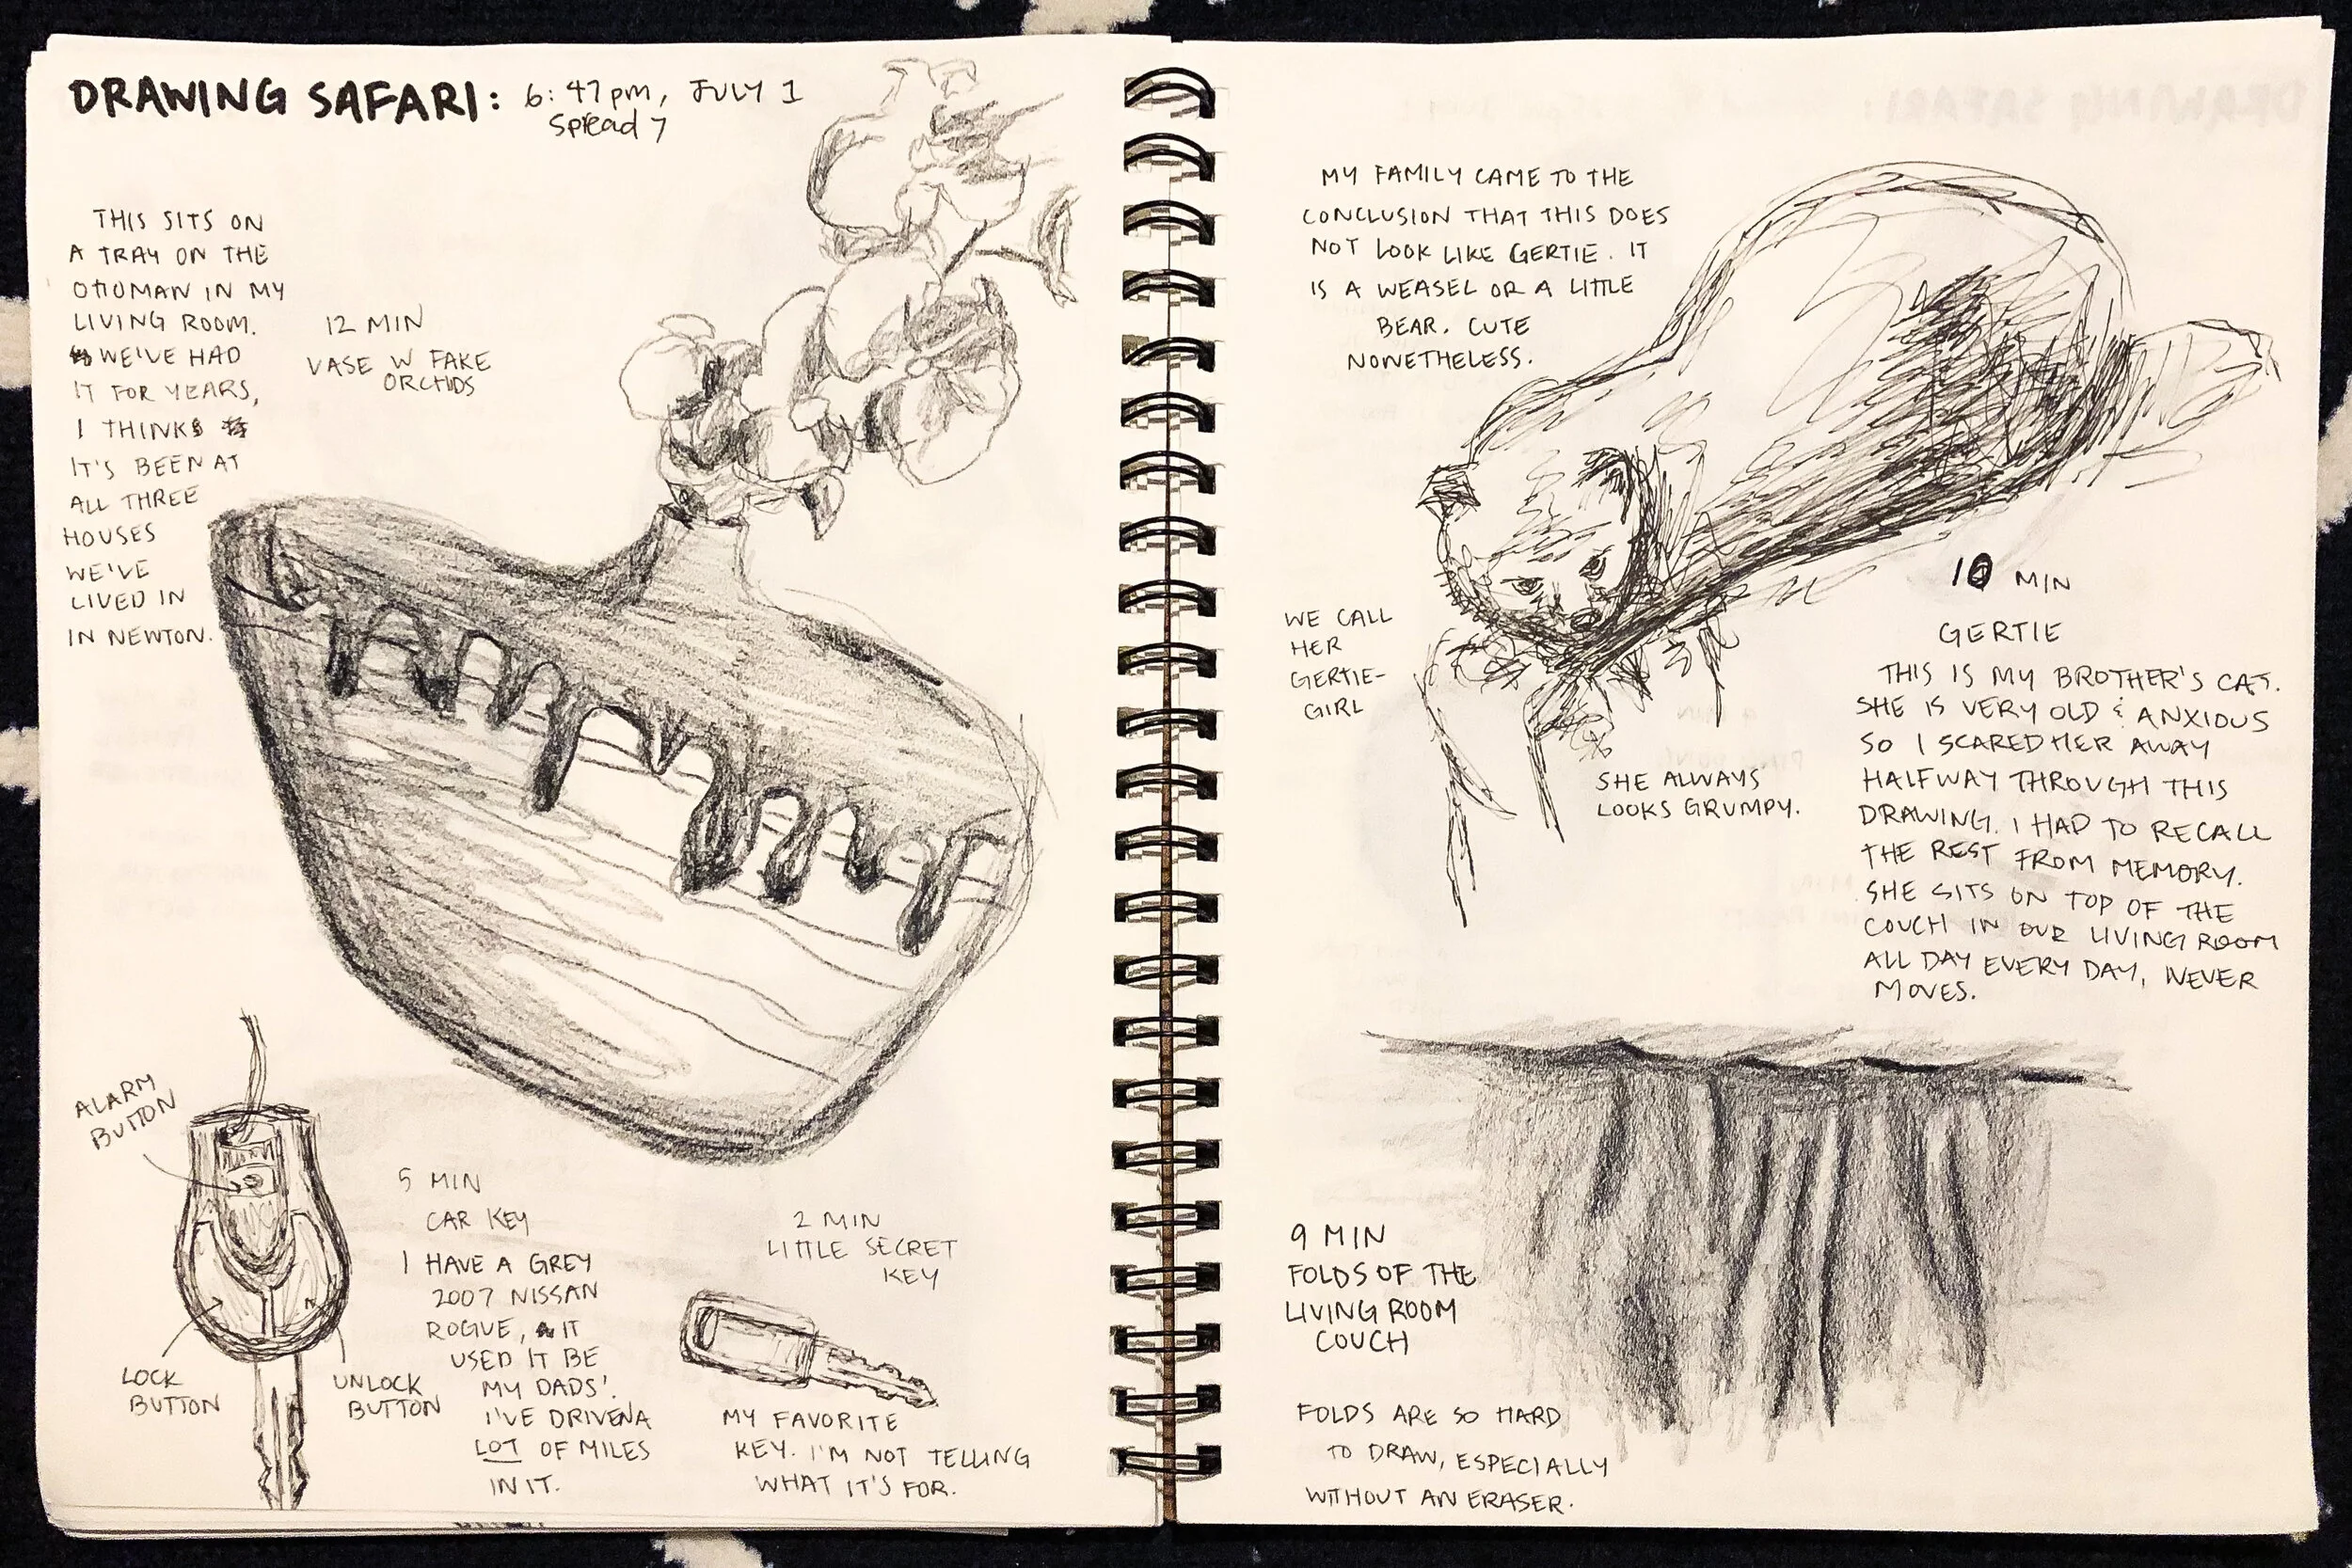 DRAWING SAFARI: 6:47pm, JULY 1
Spread 7
THIS SITS ON
A TRAY ON THE
OTTOMAN IN MY
LIVING ROOM.
WE'VE HAD
IT FOR YEARS,
I THINK
IT'S BEEN AT
ALL THREE
HOUSES
WE'VE
LIVED IN
IN NEWTON.
12 MIN
VASE W FAKE
ORCHIDS
ALARM
BUTTON
LOCK
BUTTON
UNLOCK
BUTTON
5 MIN
CAR KEY
I HAVE A GREY
2007 NISSAN
ROGUE, IT
USED IT BE
MY DADS'.
I'VE DRIVEN A
LOT OF MILES
IN IT.
2 MIN
LITTLE SECRET
KEY
MY FAVORITE
KEY. I'M NOT TELLING
WHAT IT'S FOR.
MY FAMILY CAME TO THE
CONCLUSION THAT THIS DOES
NOT LOOK LIKE GERTIE. IT
IS A WEASEL OR A LITTLE
BEAR. CUTE
NONETHELESS.
WE CALL
HER
GERTIE-
GIRL
SHE ALWAYS
LOOKS GRUMPY.
10 MIN
GERTIE
THIS IS MY BROTHER'S CAT.
SHE IS VERY OLD & ANXIOUS
SO I SCARED HER AWAY
HALFWAY THROUGH THIS
DRAWING. I HAD TO RECALL
THE REST FROM MEMORY.
SHE SITS ON TOP OF THE
COUCH IN OUR LIVING ROOM
ALL DAY EVERY DAY, NEVER
MOVES.
9 MIN
FOLDS OF THE
LIVING ROOM
COUCH
FOLDS ARE SO HARD
TO DRAW, ESPECIALLY
WITHOUT AN ERASER.